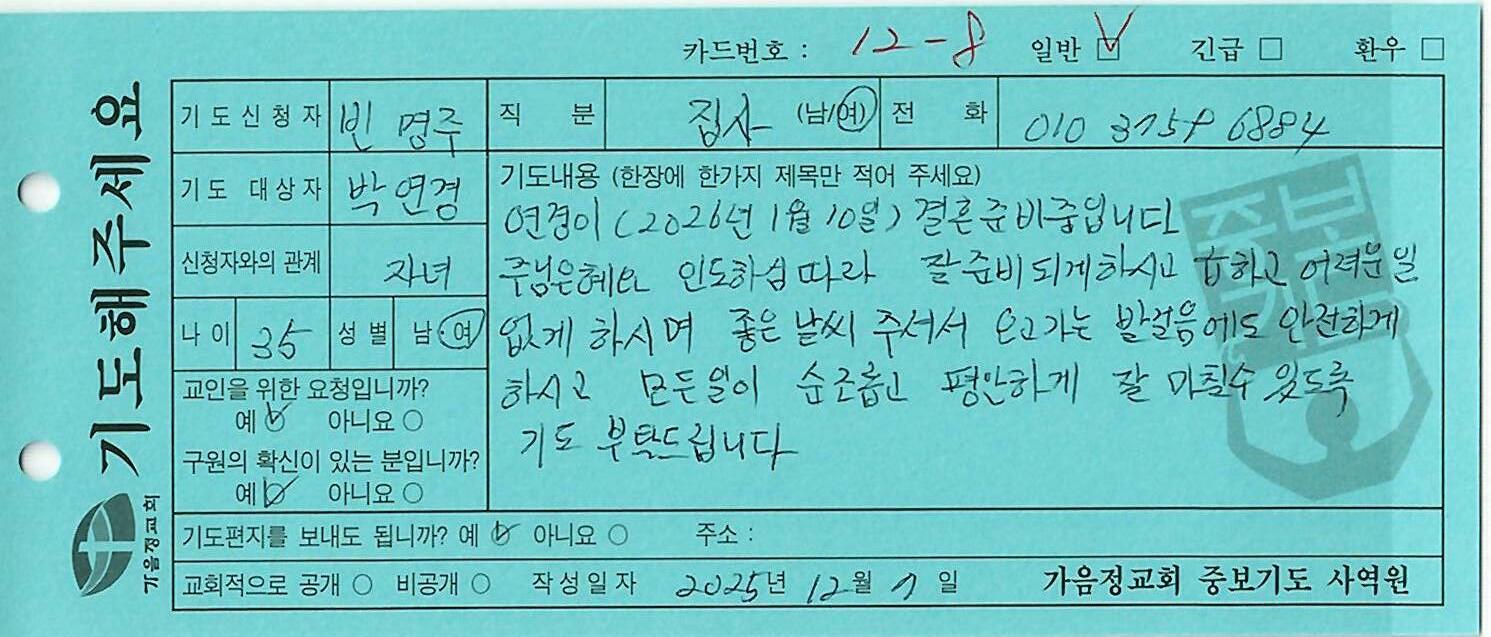 카드번호 : 12-8 일반 ☑ 긴급 □ 환우 □
기도해주세요
가음정교회
기도신청자 빈명주 직 분 집사 (남/여) 전 화 010 3758 6884
기도 대상자 박연경
신청자와의 관계 자녀
나 이 35 성별 남·여
교인을 위한 요청입니까?
예 ✓ 아니요 ○
구원의 확신이 있는 분입니까?
예 ✓ 아니요 ○
기도내용 (한장에 한가지 제목만 적어 주세요)
연경이 (2026년 1월 10일) 결혼준비중입니다
주님은혜와 인도하심따라 잘준비되게하시고 급하고 어려운일
없게 하시며 좋은 날씨 주셔서 오고가는 발걸음에도 안전하게
하시고 모든일이 순조롭고 평안하게 잘 마칠수 있도록
기도 부탁드립니다
중보기도
기도편지를 보내도 됩니까? 예 ✓ 아니요 ○ 주소 :
교회적으로 공개 ○ 비공개 ○ 작성일자 2025년 12월 7일 가음정교회 중보기도 사역원